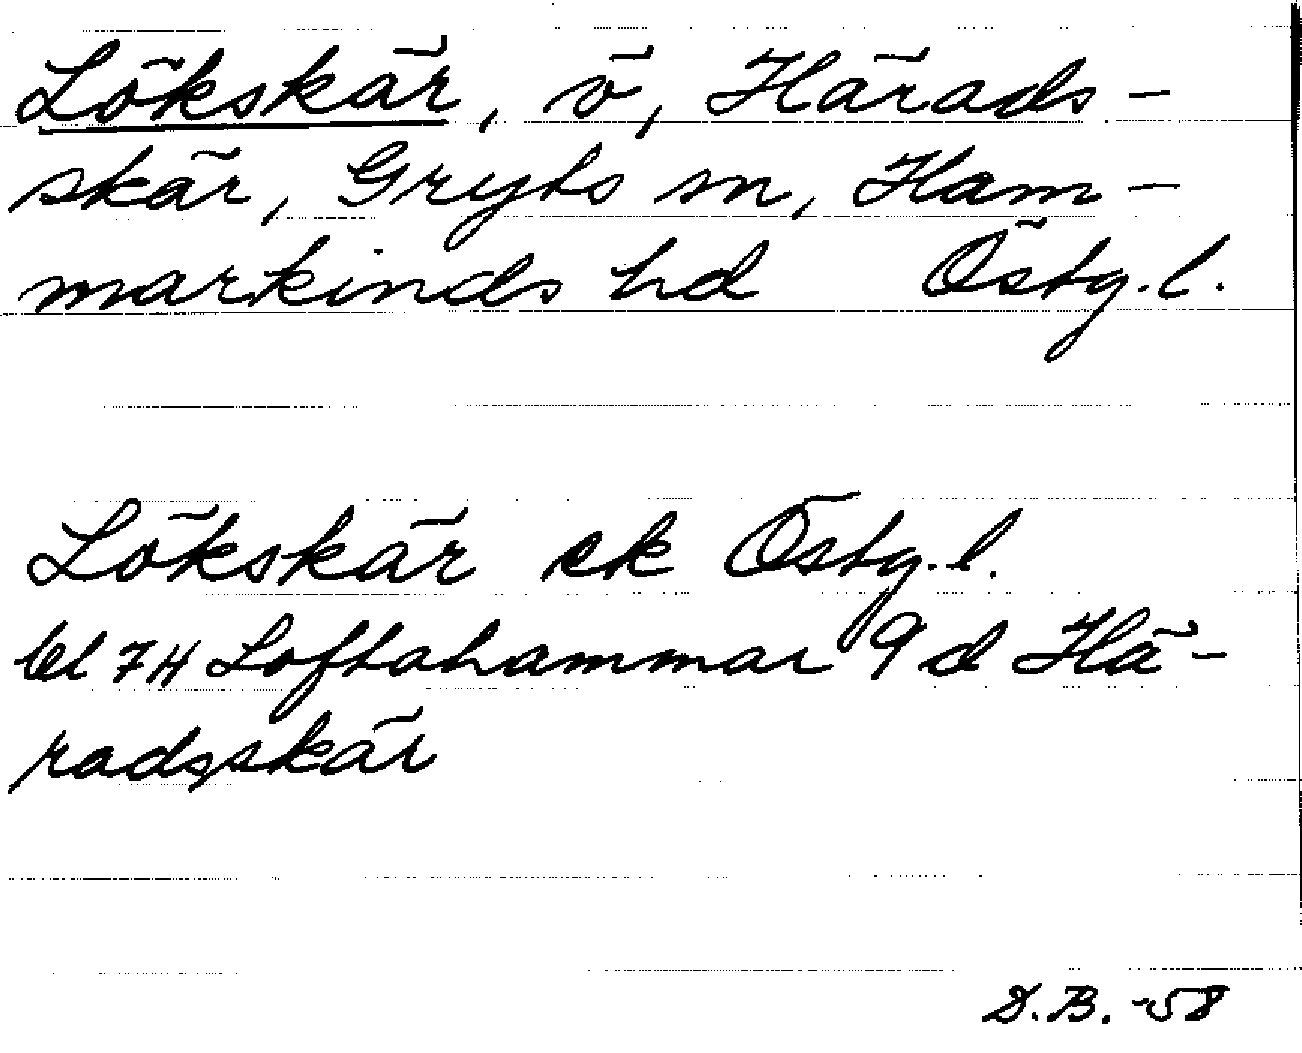 Lökskär, ö, Härads-
skär, Gryts sn, Ham-
markinds hd Östg.l.
Lökskär ek Östg.l.
bl 7H Loftahammar 9 d Hä-
radsskär
D.B. -58